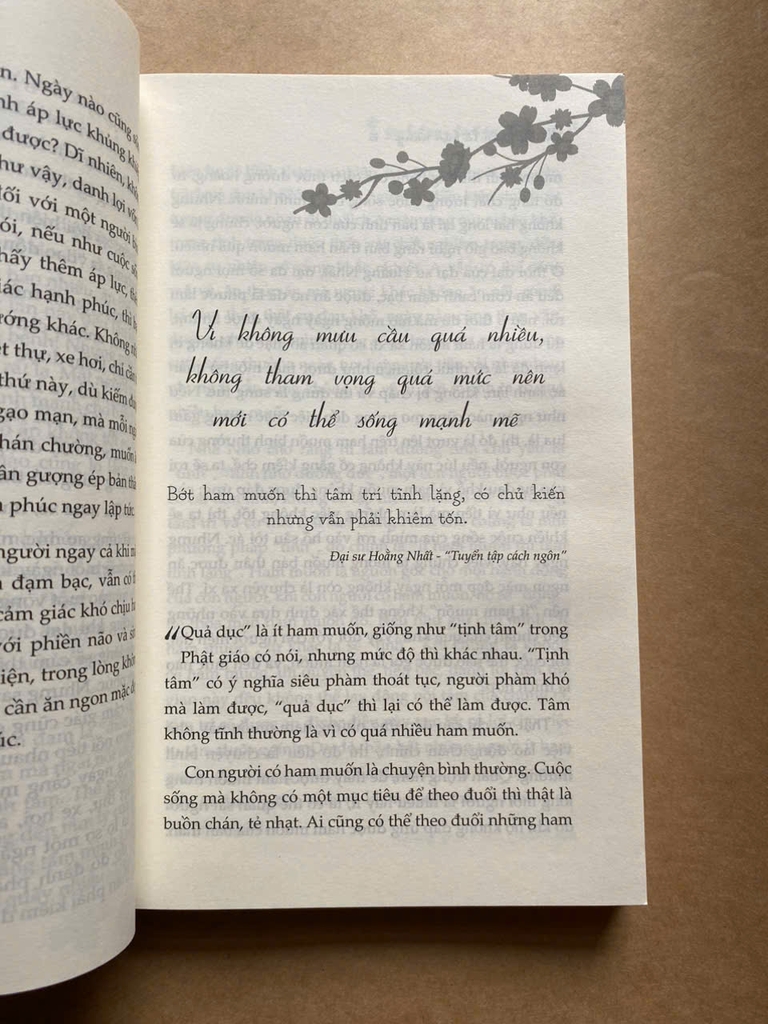 n. Ngày nào cũng
nh áp lực khủng
được? Dĩ nhiên,
hư vậy, danh lợi
đối với một người
ói, nếu như cuộc
hấy thêm áp lực,
iác hạnh phúc, thì
ướng khác. Không
ệt thự, xe hơi, chỉ cần
thứ này, dù kiếm
gạo mạn, mà mỗi
hán chường, muốn
ân gượng ép bản
n phúc ngay lập tức.
người ngay cả khi
n đạm bạc, vẫn có
cảm giác khó chịu
với phiền não và
iện, trong lòng
cần ăn ngon mặc
úc.
Vì không mưu cầu quá nhiều,
không tham vọng quá mức nên
mới có thể sống mạnh mẽ
Bớt ham muốn thì tâm trí tĩnh lặng, có chủ kiến
nhưng vẫn phải khiêm tốn.
Đại sư Hoằng Nhất - “Tuyển tập cách ngôn”
“Quả dục” là ít ham muốn, giống như “tịnh tâm” trong
Phật giáo có nói, nhưng mức độ thì khác nhau. “Tịnh
tâm” có ý nghĩa siêu phàm thoát tục, người phàm khó
mà làm được, “quả dục” thì lại có thể làm được. Tâm
không tĩnh thường là vì có quá nhiều ham muốn.
Con người có ham muốn là chuyện bình thường. Cuộc
sống mà không có một mục tiêu để theo đuổi thì thật là
buồn chán, tẻ nhạt. Ai cũng có thể theo đuổi những ham